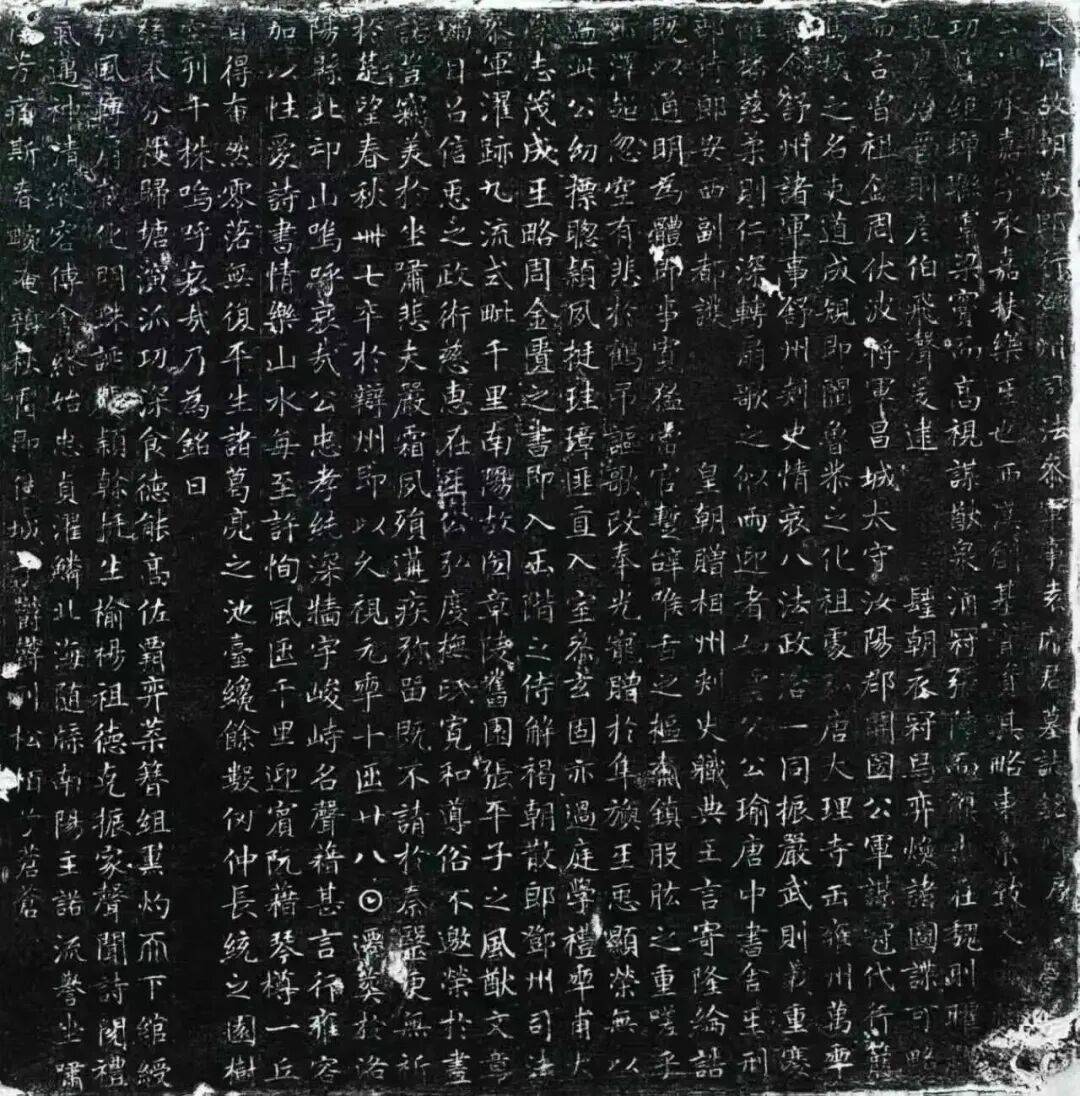 大周故朝散郎行鄧州司法參軍事袁府君墓誌銘
承嘉字承嘉樂𤯔也西漢開基其略東
組蟬聯梁實而高視謀猷泉涌冠張陳而在魏則
晉則彥伯飛聲爰逮 聖朝衣冠舄弈煥諸圖諜可略
而言曾祖金周伏波將軍昌城太守汝陽郡開國公軍謀冠代行
之名吏道成規即闡魯恭之化祖處弘唐大理寺𢘑雍州萬𠡦
令舒州諸軍事舒州刾史情哀八法政洽一同振嚴武則義重寒
慈柔則仁深轉扇歌之似而迎者公公瑜唐中書舍𤯔刑
部侍郎安西副都護 皇朝贈相州刾史職典王言寄隆綸誥
既以道明為體即事寬猛當官蹔辭喉舌之樞齎鎮股肱之重嗟乎
澤起忽空有悲於鶴吊謳歌改奉光寵贈於隼旟𤯔惡顯榮無以
過此公幼摽聦穎夙挺珪璋匪直入室參玄固亦過庭學禮𠡦甫大
志茂成𤯔略周金匱之書即入𢘑階之侍解褐朝散郎鄧州司法
叅軍濯跡九流式毗千里南陽故圀章陵舊園張平子之風猷文章
滿目呂信𢘑之政術慈惠在𤯔公弘度撫𤯔寬和導俗不邀榮於畫
諾豈竊美於坐嘯悲夫嚴霜夙殞遘疾弥留既不請於秦毉更無祈
於楚望春秋卌七卒於辯州即以久視元𠡦十𠥱廿八𡆠遷葬於洛
陽縣北邙山嗚呼哀哉公忠孝純深牆宇峻峙名聲藉甚言行雍容
加以性愛詩書情樂山水每至許恂風𠥱千里迎賓阮藉琴樽一丘
自得有然零落無復平生諸葛亮之池臺纔餘數仞仲長統之園樹
空列千株嗚呼哀哉乃為銘曰
分媯歸塘演派功深食德能高佐霸弈葉簪組累灼而下綰綬
弘風陣眉敷化門姝誕貺穎幹挺生榆楊祖德克振家聲聞詩閱禮
氣邁神清縱容傅會終始忠貞濯鱗北海随牒南陽主諾流譽坐嘯
芳痛斯春畹淹頹秋崗即佳城鬱鬱列松栢兮蒼蒼